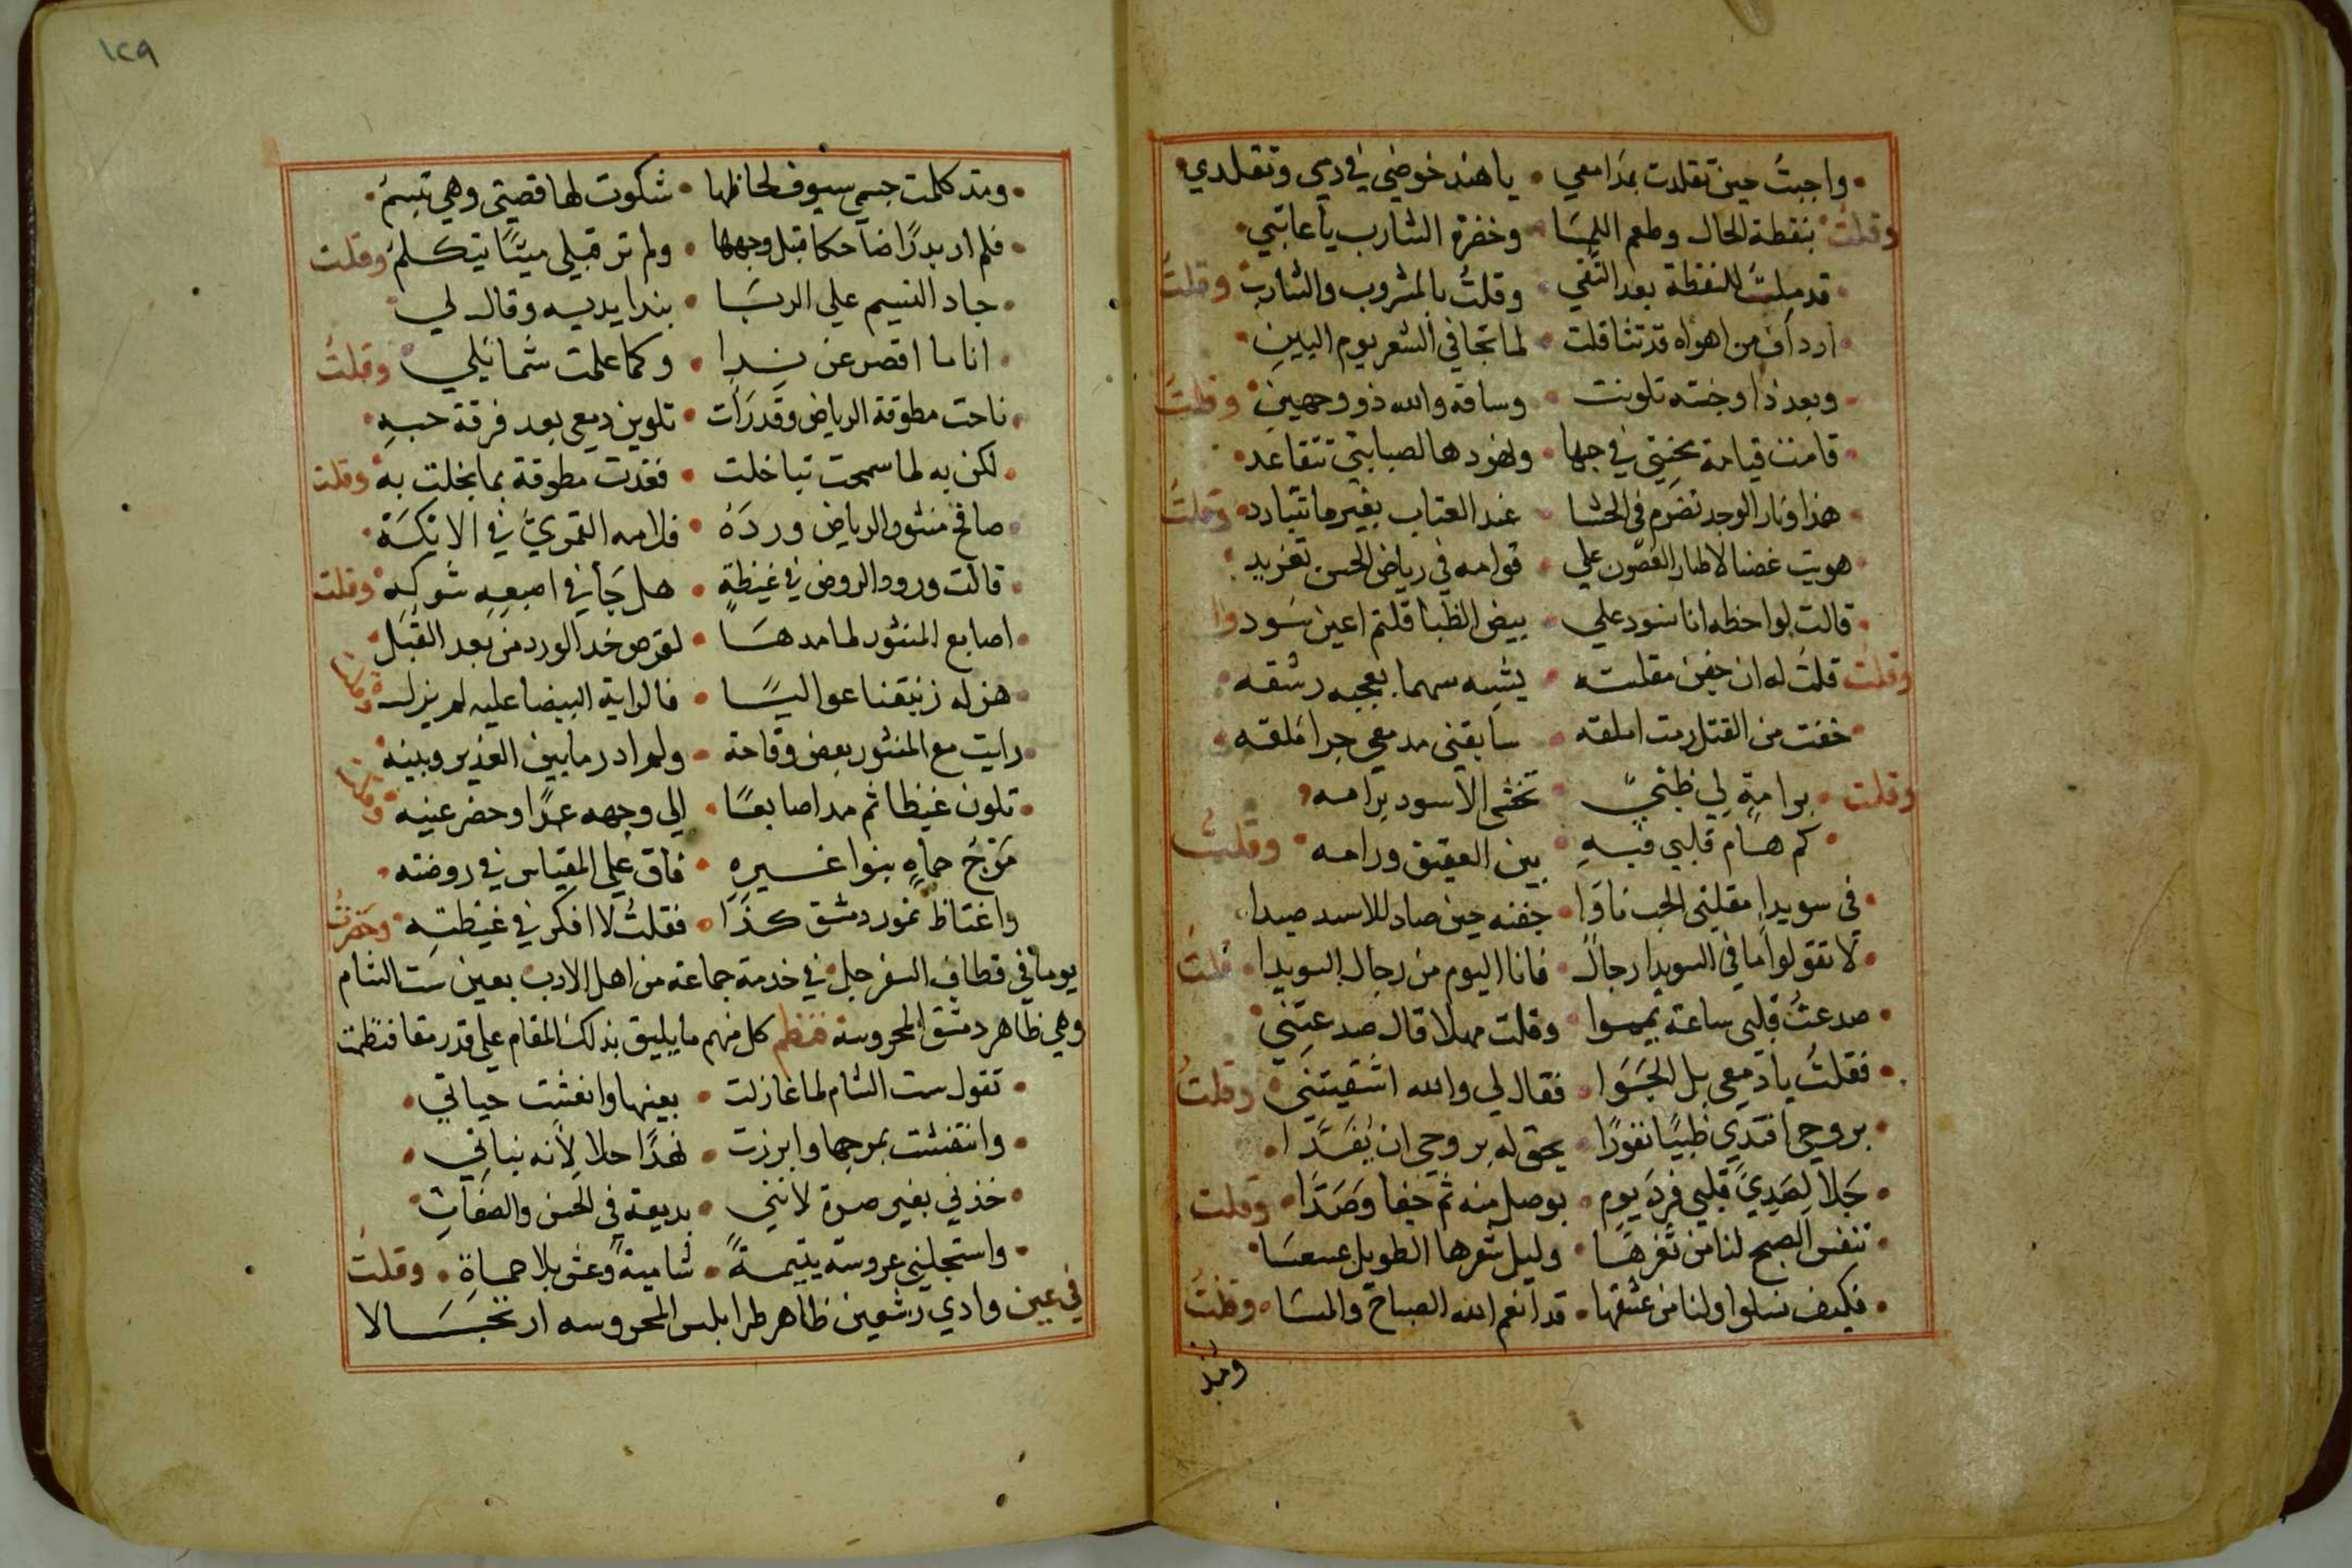 واجبتُ حين تقلدت بمدامعي • يا هند خوضي في دمي وتقلدي
وقلتُ بنقطة الخال وطعم اللمسَا • وخضرة الشارب يا عاتبي
قد ملتُ للنقطة بعد النقي • وقلتُ بالمشروب والشارب وقلتُ
ارداف من اهواه قد تثاقلت • لما تجافي الشعر يوم البين
وبعد ذا وجنته تلونت • وساقه والله ذو وجهين وقلتُ
قامت قيامة محنتي في حبها • ونهودها لصبابتي تتقاعد
هذا ونار الوجد تضرم في الحشا • عند العتاب بغير ما تتبارد وقلتُ
هويت غصنا لاطيار الغصون علي • قوامه في رياض الحسن تغريد
قالت لواحظه انا نسود علي • بيض الظبا قلتم اعين سَود
وقلتُ قلتُ له ان جفن مقلته • يشبه سهما يعجبه رشقه
خفت من القتل رمت املقه • سابقني مدمعي جرا ملقه
وقلت • برامةٍ لي ظبيً • تخشي الاسود برامه
كم هام قلبي فيهِ • بين العقيق ورامه وقلتُ
في سويدا مقلتي الحب ناوَا • جفنه حين صاد للاسد صيدا
لا تقولوا ما في السويدا رجال • فانا اليوم من رجال السويدا • قلتُ
صدعتُ قلبي ساعة يمموا • وقلت مهلا قال صدعتني
فقلتُ يا دمعي بل الجَوَا • فقال لي والله اشقيتني وقلتُ
بروحي افتدي ظبيًا نفورًا • يحق له بروحي ان يفدَّا
جَلا لِصَدِيَ قلبي فردَ يومِ • بوصل منه ثم جفا وَصَدَّا • وقلت
تنفس الصبح لنا من ثغرهَا • وليل شعرها الطويل عسعسَا
فكيف نسلوا ولنا من عشقها • قد انعم الله الصباحَ والمسَا • وقلتُ
ومذ
١٢٩
• ومذ كلمت جسمي سيوف لحاظها • شكوت لها قصتي وهي تبسمُ
• فلم ار بدرًا ضاحكا قبل وجهها • ولم تر قبلي ميتًا يتكلمُ وقلت
• جاد النسيم علي الربَا • بندا يديه وقال لي
• انا ما اقصر عن ندا • وكما علمت شمائلي وقلتُ
ناحت مطوقة الرياض وقد رَات • تلوين دمعي بعد فرقة حبهِ
لكن به لما سمحت تباخلت • فغدت مطوقة بما بخلت به وقلت
صافح منثور الرياض وردَهُ • فلامه القمريُّ في الايكَة
قالت ورود الروض في غيظةٍ • هل جَا في اصبعهِ شوكه وقلت
اصابع المنثور لما مدهَا • لقرص خد الورد من بعد القُبَل
هز له زنبقنا عواليًا • فالراية البيضا عليه لم يزل وقلتُ
رايت مع المنثور بعض وقاحة • ولم ادر ما بين الغدير وبينه
تلون غيظا ثم مد اصابعًا • الي وجهه عمدًا وحضر عينه وقلتُ
مَوّجُ حماهٍ بنوا غيرهِ • فاق علي المقياس في روضته
واغتاظ نمور دمشق كذَا • فقلتُ لا افكر في غيظته وحَضرتُ
يوما في قطاف السفرجل في خدمة جماعة من اهل الادب بعين ست الشام
وهي ظاهر دمشق المحروسة فنظم كل منهم ما يليق بذلك المقام علي قدر مقا فنظمت
• تقول ست الشام لما غازلت • بعينها وانعشت حياتي
• وانتفشت بمرجها وابرزت • نهدًا حلا لانه نباتي
• خذني بغير صرة لانني • بديعة في الحسن والصفاتِ
• واستجلني عروسة يتيمةً • شاميةً وعش بلا حماةِ • وقلتُ
في عين وادي رشعين ظاهر طرابلس المحروسه ارتجَالا